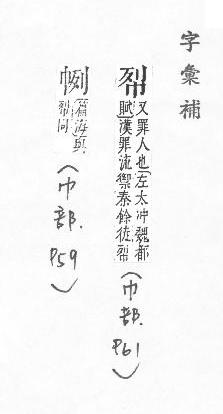 字彙補
又罪人也左太沖魏都
賦漢罪流禦秦餘徙
(巾部.P61)
篇海與
同
(巾部.P59)